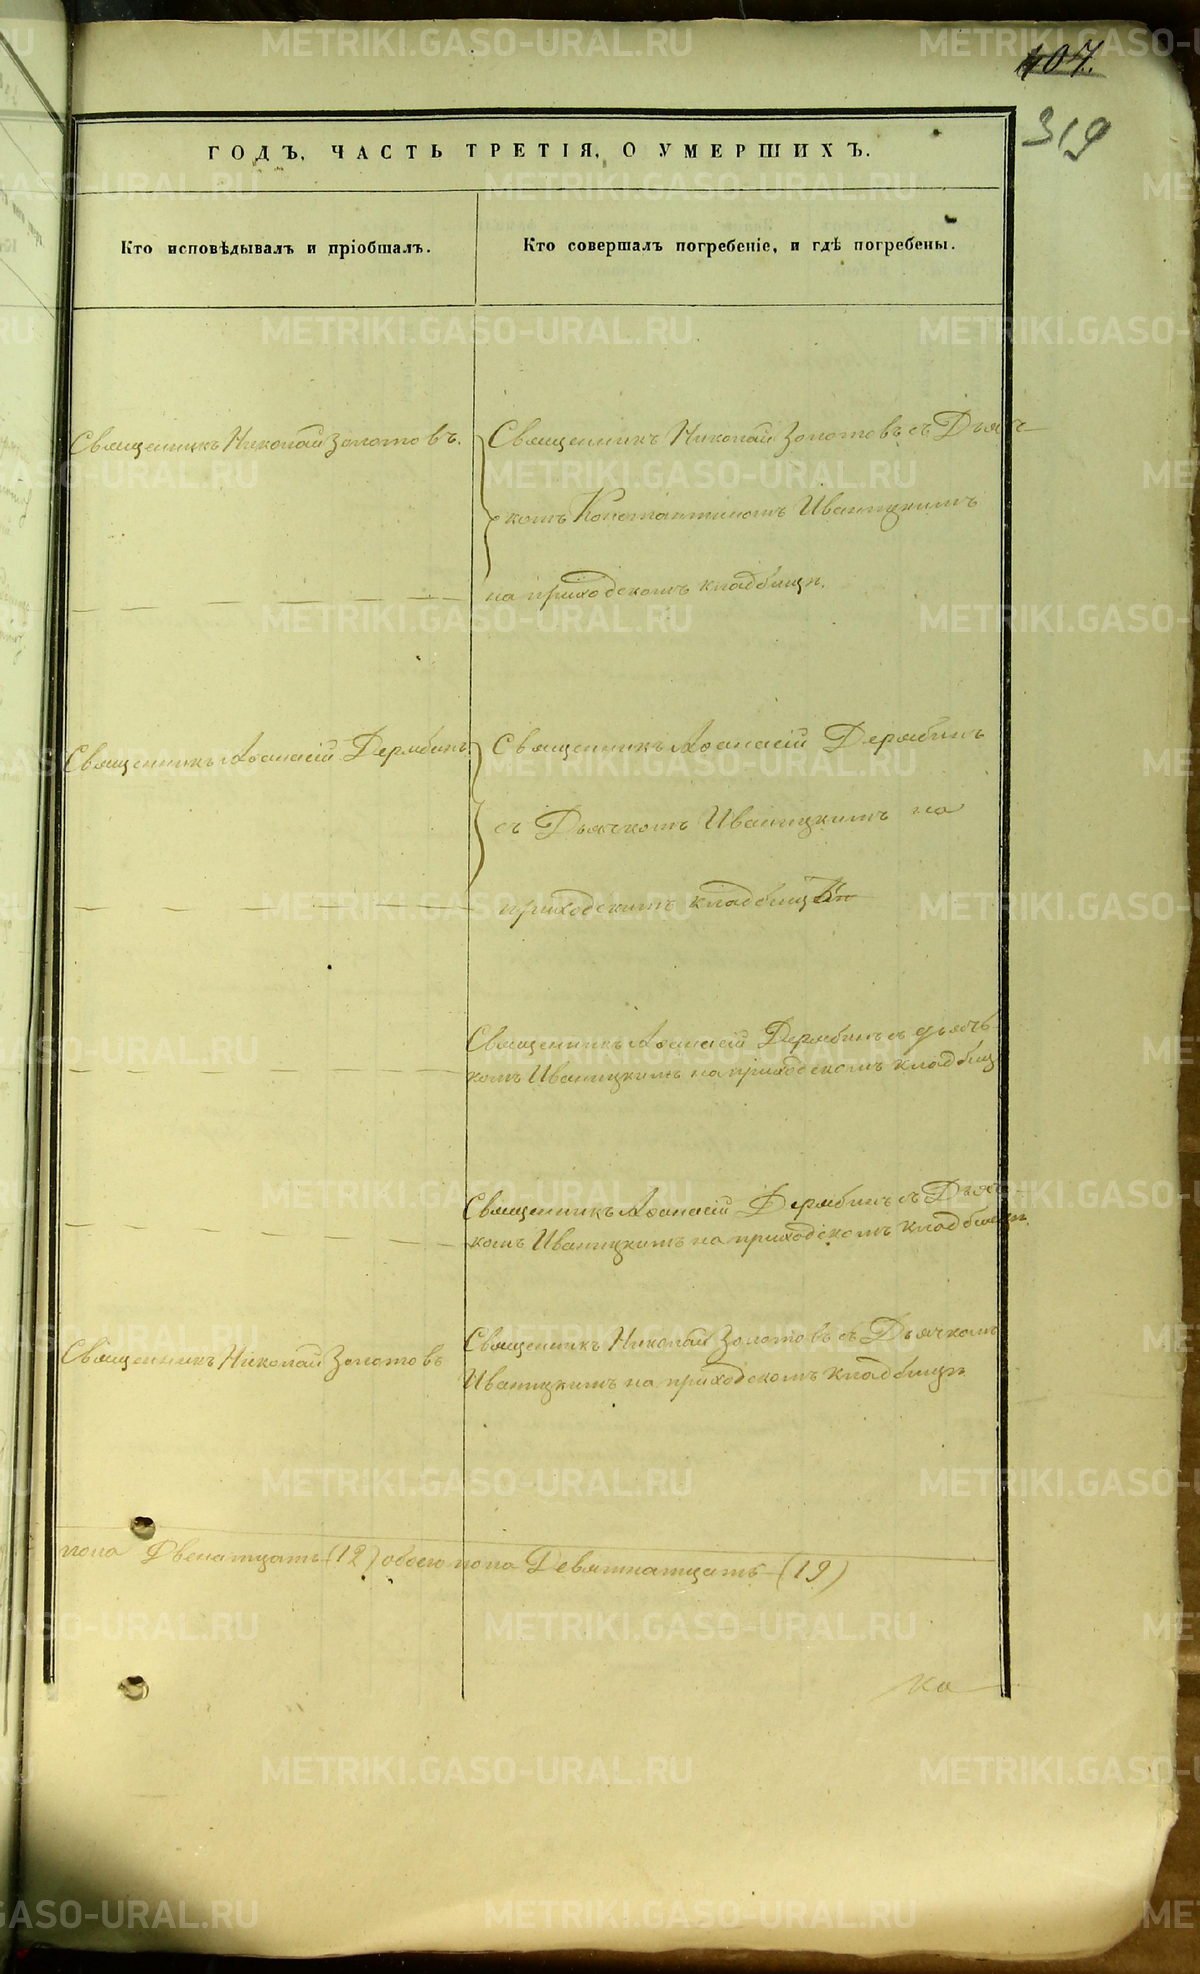 407.
319
ГОДЪ, ЧАСТЬ ТРЕТІЯ, О УМЕРШИХЪ.
Кто исповѣдывалъ и пріобщалъ.
Кто совершалъ погребеніе, и гдѣ погребены.
Священникъ Николай Золотовъ.
Священникъ Николай Золотовъ съ Дьяч
комъ Константиномъ Иваницкимъ
на приходскомъ кладбищѣ.
Священникъ Аѳанасій Дерябинъ
Священникъ Аѳанасій Дерябинъ
съ Дьячкомъ Иваницкимъ на
приходскимъ кладбищѣ
Священникъ Аѳанасій Дерябинъ съ дьячь
комъ Иваницкимъ на приходскомъ кладбищ
Священникъ Аѳанасій Дерябинъ съ Дьяч
комъ Иваницкимъ на приходскомъ кладбищѣ.
Священникъ Николай Золотовъ
Священникъ Николай Золотовъ съ Дьячкомъ
Иваницкимъ на приходскомъ кладбищѣ
пола Двенатцать (12) обоего пола Девятнатцать (19)
На
METRIKI.GASO-URAL.RU